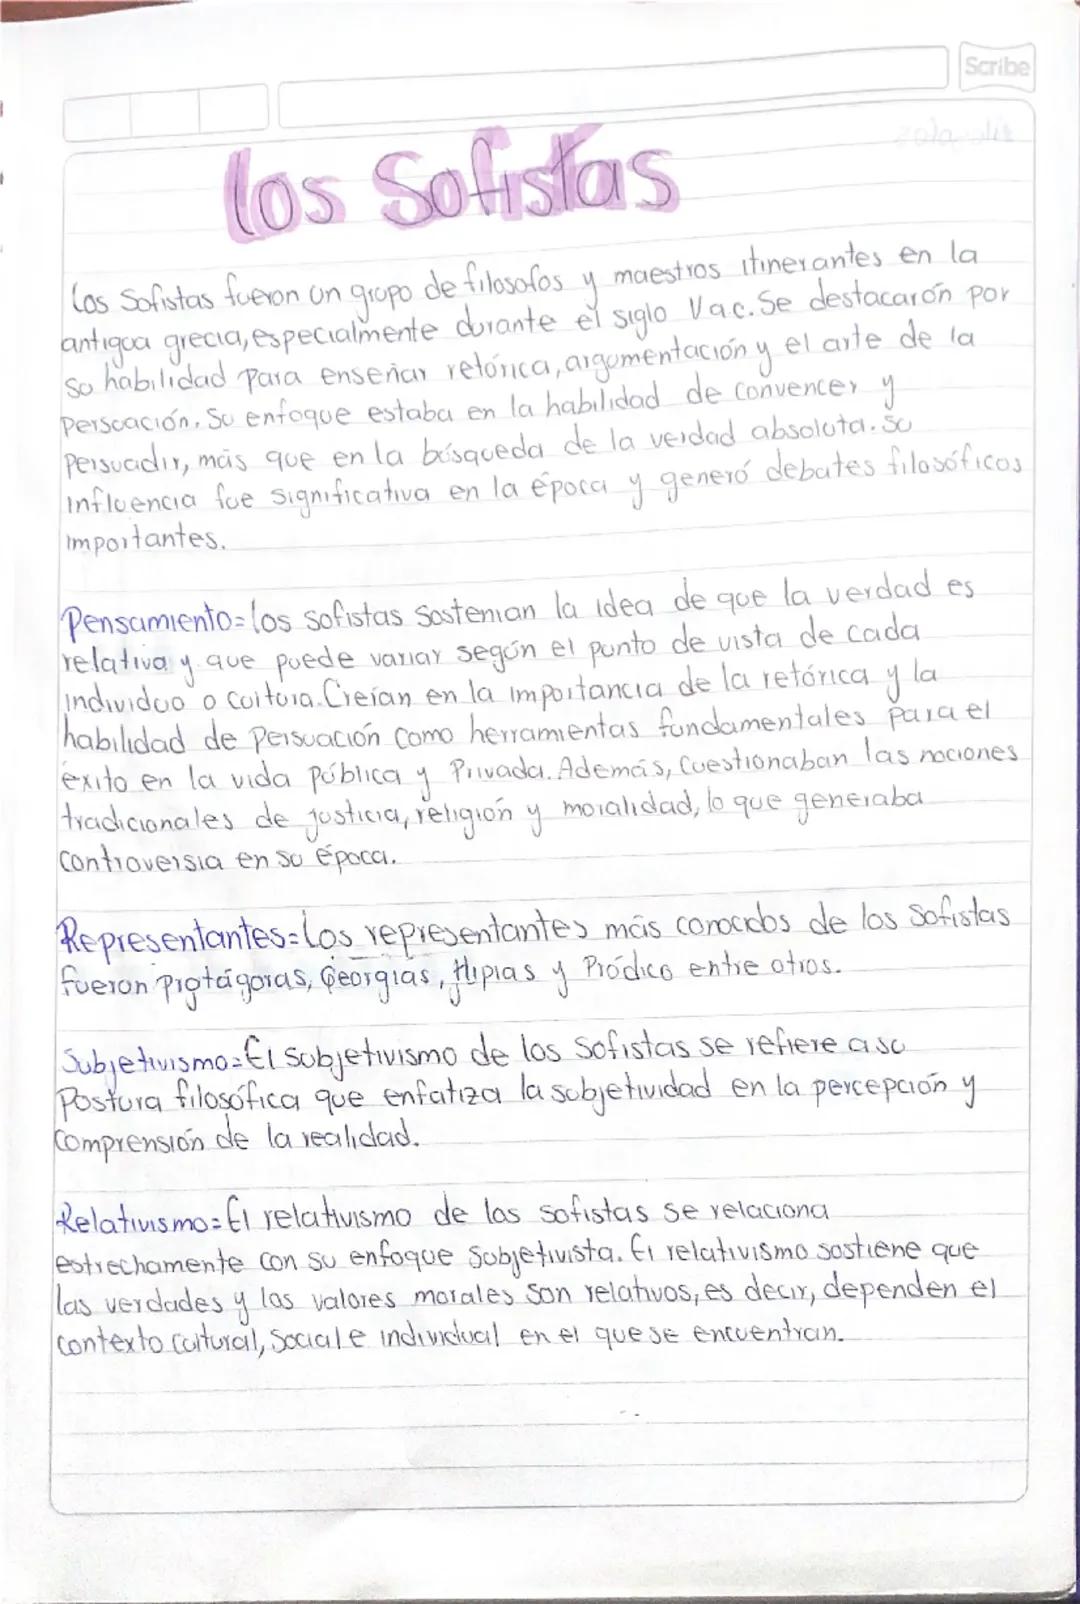 Scribe
los Sofistas
Los Sofistas fueron un grupo de filosofos y maestros itinerantes en la
antigua grecia, especialmente durante el siglo V a.c. Se destacarón por
su habilidad para enseñar retórica, argumentación y el arte de la
persuación. Su enfoque estaba en la habilidad de convencer y
persuadir, más que en la búsqueda de la verdad absoluta. su
influencia fue significativa en la época y generó debates filosóficos
importantes.
Pensamiento= los sofistas sostenian la idea de que la verdad es
relativa y que puede variar según el punto de vista de cada
individuo o cultura. Creían en la importancia de la retórica y la
habilidad de persuación como herramientas fundamentales para el
éxito en la vida pública y Privada. Además, cuestionaban las nociones
tradicionales de justicia, religión y moralidad, lo que generaba
controversia en su época.
Representantes= Los representantes más conocidos de los sofistas
fueron protágoras, Georgias, Hipias y Pródico entre otros.
Subjetivismo= El subjetivismo de los sofistas se refiere a su
Postura filosófica que enfatiza la subjetividad en la percepción y
comprensión de la realidad.
Relativismo= El relativismo de los sofistas se relaciona
estrechamente con su enfoque subjetivista. El relativismo sostiene que
las verdades y los valores morales son relativos, es decir, dependen el
contexto cultural, social e individual en el que se encuentran.